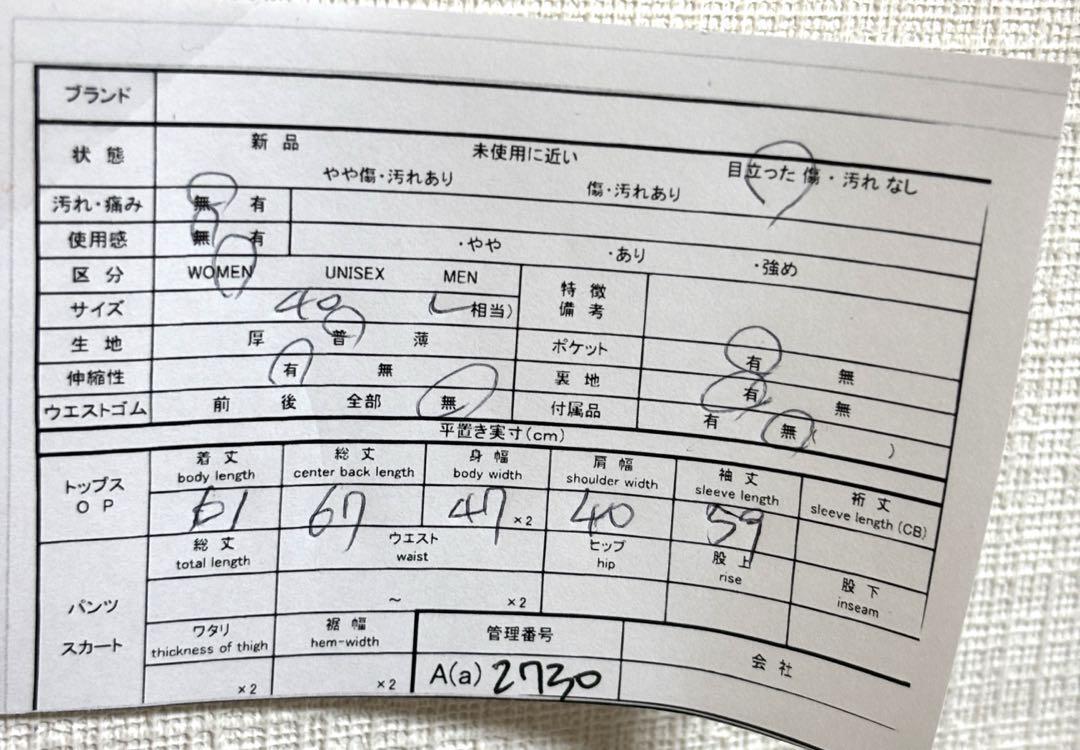 ブランド
状態 新品 未使用に近い 目立った傷・汚れなし
やや傷・汚れあり 傷・汚れあり
汚れ・痛み 無 有
使用感 無 有 ・やや ・あり ・強め
区分 WOMEN UNISEX MEN 特徴備考
サイズ 40 L 相当)
生地 厚 普 薄 ポケット 有 無
伸縮性 有 無 裏地 有 無
ウエストゴム 前 後 全部 無 付属品 有 無( )
平置き実寸(cm)
トップス OP
着丈 総丈 身幅 肩幅 袖丈 裄丈
body length center back length body width shoulder width sleeve length sleeve length (CB)
61 67 47 ×2 40 59
パンツ スカート
総丈 ウエスト ヒップ 股上 股下
total length waist hip rise inseam
~ ×2
ワタリ 裾幅 管理番号 会社
thickness of thigh hem-width
×2 ×2 A(a) 2730